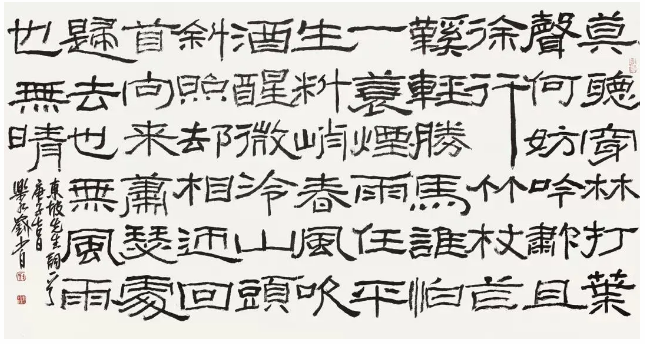 莫聽穿林打葉
聲何妨吟嘯且
徐行竹杖芒
鞵輕勝馬誰怕
一蓑煙雨任平
生料峭春風吹
酒醒微泠山頭
斜照却相迎回
首向来蕭瑟處
歸去也無風雨
也無晴
東坡先生詞一
庚子日